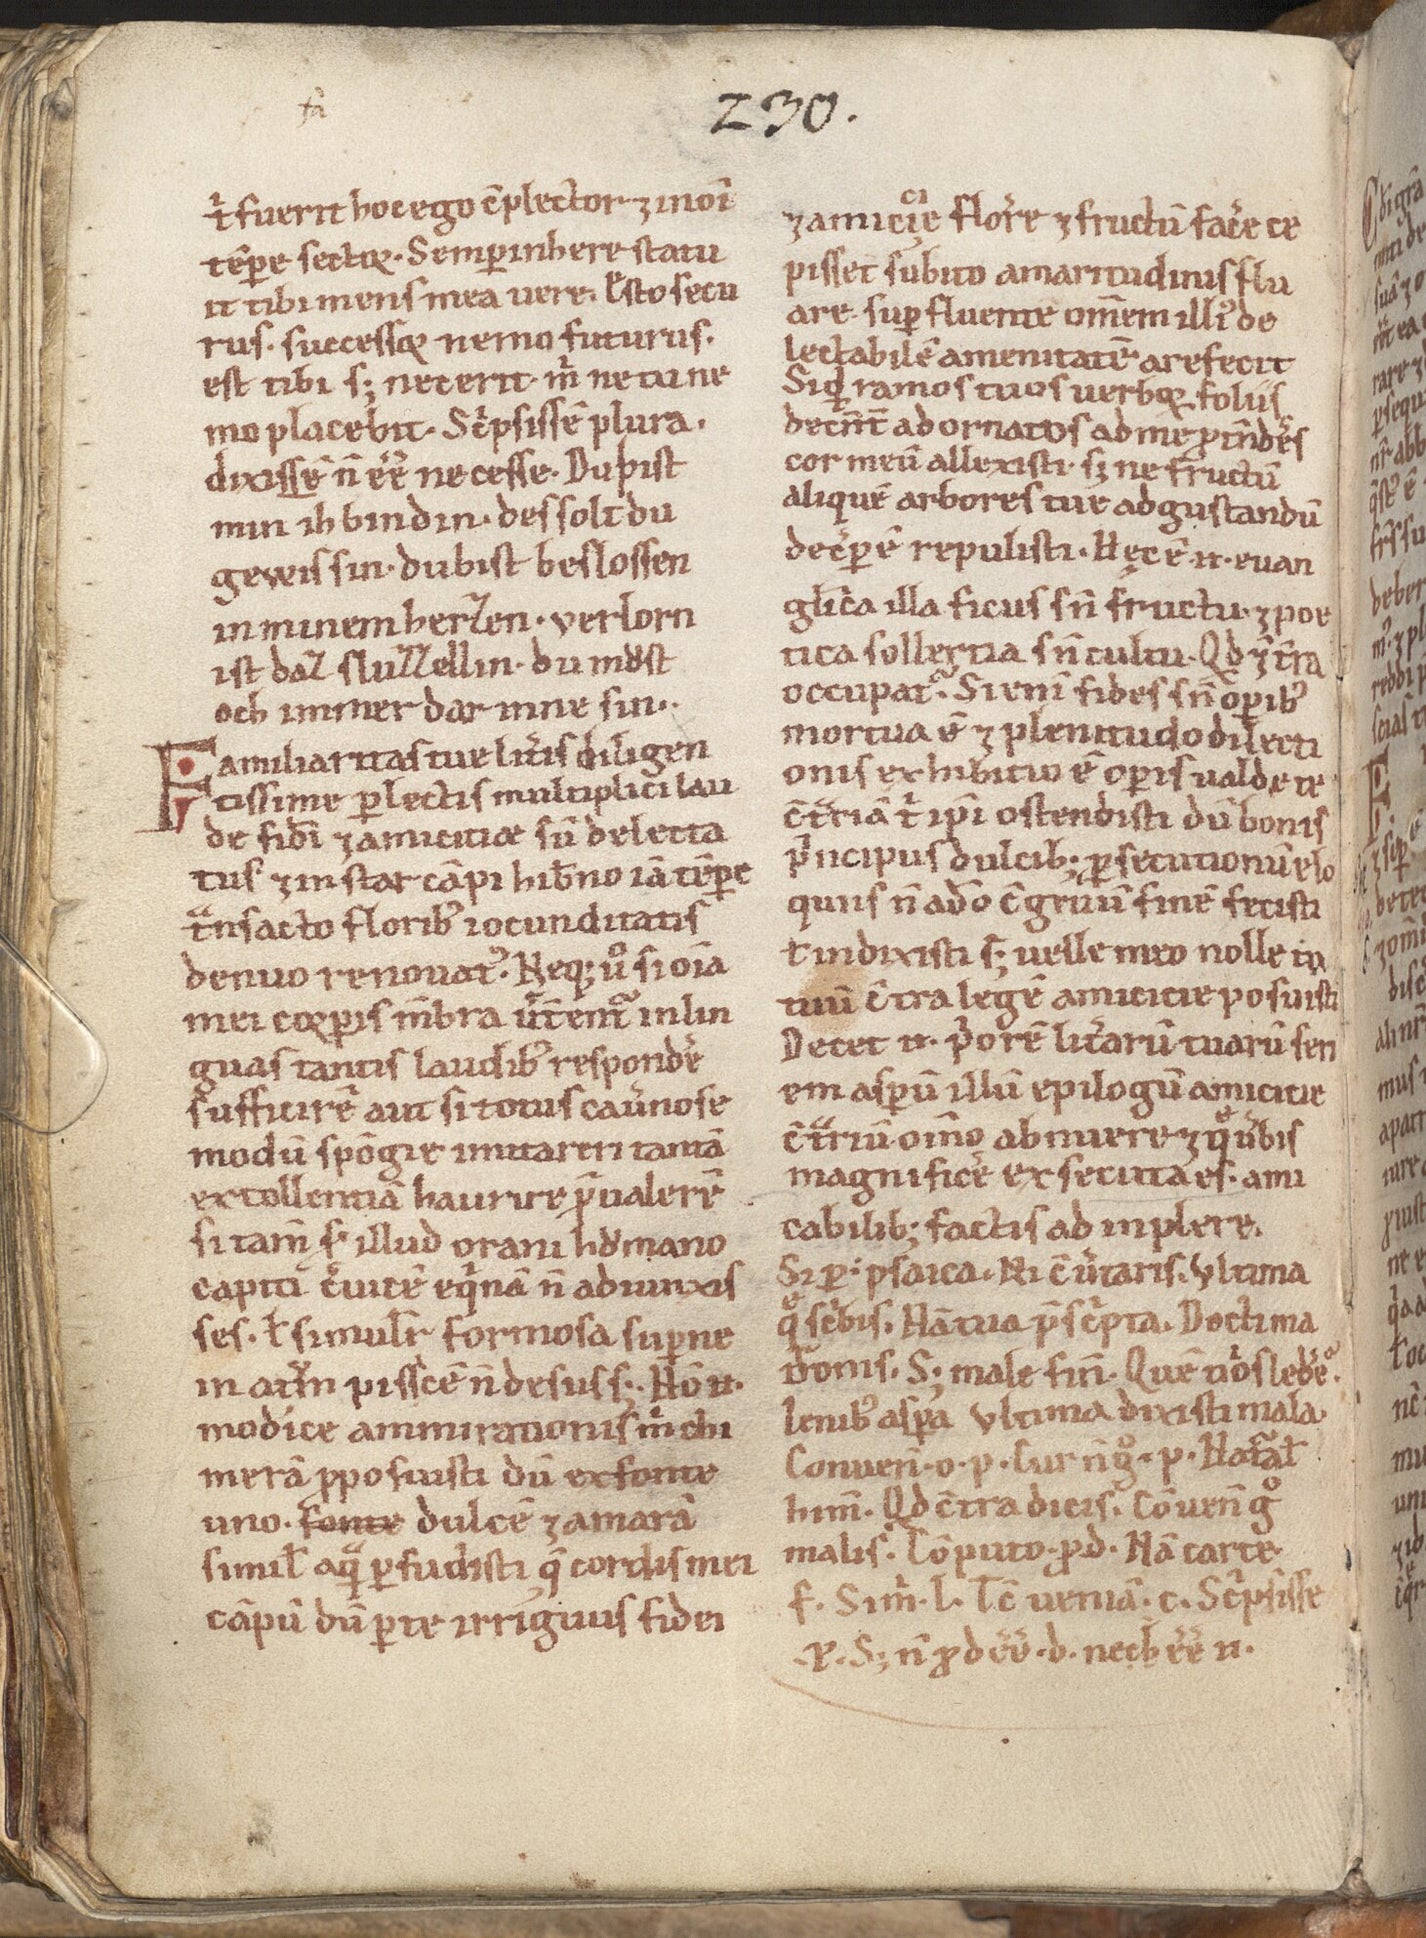 fa
230.
t̓ fuerit hoc ego c̄plector ⁊ in oī
tēꝑe sectoꝝ. Semꝑ inherere statu
it tibi mens mea uere. Esto secu
rus. successoꝝ nemo futurus.
est tibi sꝫ nec erit. m̓ ne tu ne
mo placebit. Sc̓psissē plura.
dixissē n̄ eē̄ necesse. Du bist
min ih bin din. des solt du
gewis sin. du bist beslossen
in minem herzen. verlorn
ist daz sluzzellin. du muͦst
och immer dar inne sin..
Familiaritas tue litˀis diligen
tissime ꝑlectis multiplici lau
de fidī ⁊ amicitiæ sū delecta
tus ⁊ instar cāpi hib̄no iā tēꝑe
tͣnsacto floribꝰ iocunditatis
denuo renouatꝰ. Neqꝫ uͦ si oīa
mei corꝑis m̄bra uˀtēntͬ in lin
guas tantis laudibꝰ respondeˀ
sufficirē aut si totus cauˀnose
modū spōgie imitarer tantā
extollentiā haurire p̄ualerē
si tam̄ illud orani huͦmano
capiti c̓uicē eq̓nā n̄ adiunxis
ses. ł simulr̄ formosa suꝑne
in atͬm pissc̄ē n̄ desusꝫ. Nō n̄.
modice ammirationis m̓ chi
merā ꝓposuisti dū ex fonte
uno. fonte dulcē ⁊ amarā
simil̄ aqͣ ꝑfudisti q̄ cordis mei
cāpū dū ꝑ te irriguus fidei
ci
⁊ amicie floreˀ ⁊ fructū faceˀe ce
pisset subito amaritudinis flu
are. suꝑfluente om̄em illiꝰ de
lectabilē amenitatē arefecit
Siqͥd ramos tuos uerboꝝ foliis
decn̄t̄ adornatos ad me ꝓtn̄deˀs
cor meū allexisti. sꝫ ne fructū
aliquē arbores tue ad gustandū
decˀꝑē repulisti. Hec ē n̄. euan
glīca illa ficus sn̄ fructu. ⁊ poe
tica sollertia sn̄ cultu. Qd ⁊ t̄ra
occupatͣ. Si enī fides sn̄ oꝑibꝰ
mortua ē ⁊ plenitudo dilecti
onis exhibitio ē oꝑis ualde te
c̄tͣriā t̓ ipī ostendisti dū bonis
pͥncipiis dulcibꝫ ꝑsecutionū elo
quiis n̄ adō c̄gruū finē fecisti
ł indixisti sꝫ uelle meo nolle in
tuū c̄tra legē amicitie posuisti
Decet n̄. pͥorē litˀarū tuarū sen
em asꝑū illū epilogū amicitie
c̄tͣriū om̄o abnuere ⁊ qͤ uˀbis
magnifice exsecuta es. ami
cabilibꝫ factis adinplere.
Si ꝑ. psaica. Ni c̄uˀtaris. Vltima
qͤ scˀbis. Nā tua p̄scˀpta. Doctima
donis. Sꝫ male finˀ. Quē n̄ōs ledeˀēͦ.
lenibꝰ asꝑa Vltima dixisti mala.
Conuen̄. o. p. Cur n̄ gͦ. p. Natͣał
him̄. Qd c̄tra dicis. Cōuen̄ gͦ
malis. Cōputo. ꝓd. Nā carte.
f. Sim̓. l. Tc̄ ueniā. c. Scˀpsisse
.P. Sꝫ n̄ ꝓdēē. d. nech eē̄ n̄.